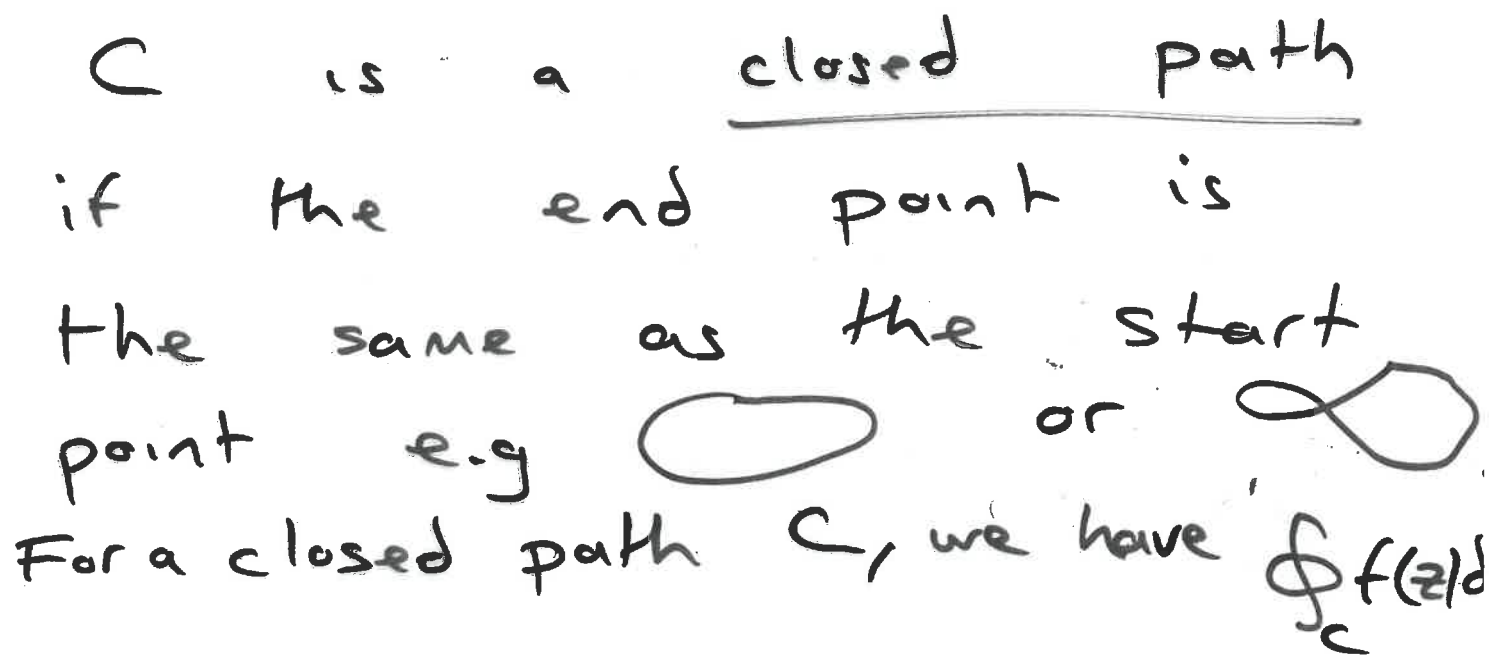 C is a closed path
if the end point is
the same as the start
point e.g or
For a closed path C, we have ∮_C f(z)d